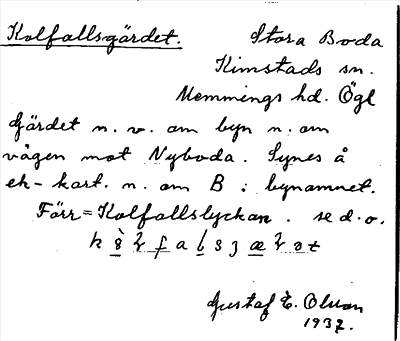 Kolfallsgärdet.
Stora Boda
Kimstads sn.
Memmings hd. Ögl
Gärdet n. v. om byn n. om
vägen mot Nyboda. Synes å
ek-kart. n. om B i bynamnet.
Förr = Kolfallslyckan. se d. o.
Gustaf E. Olson
1937.